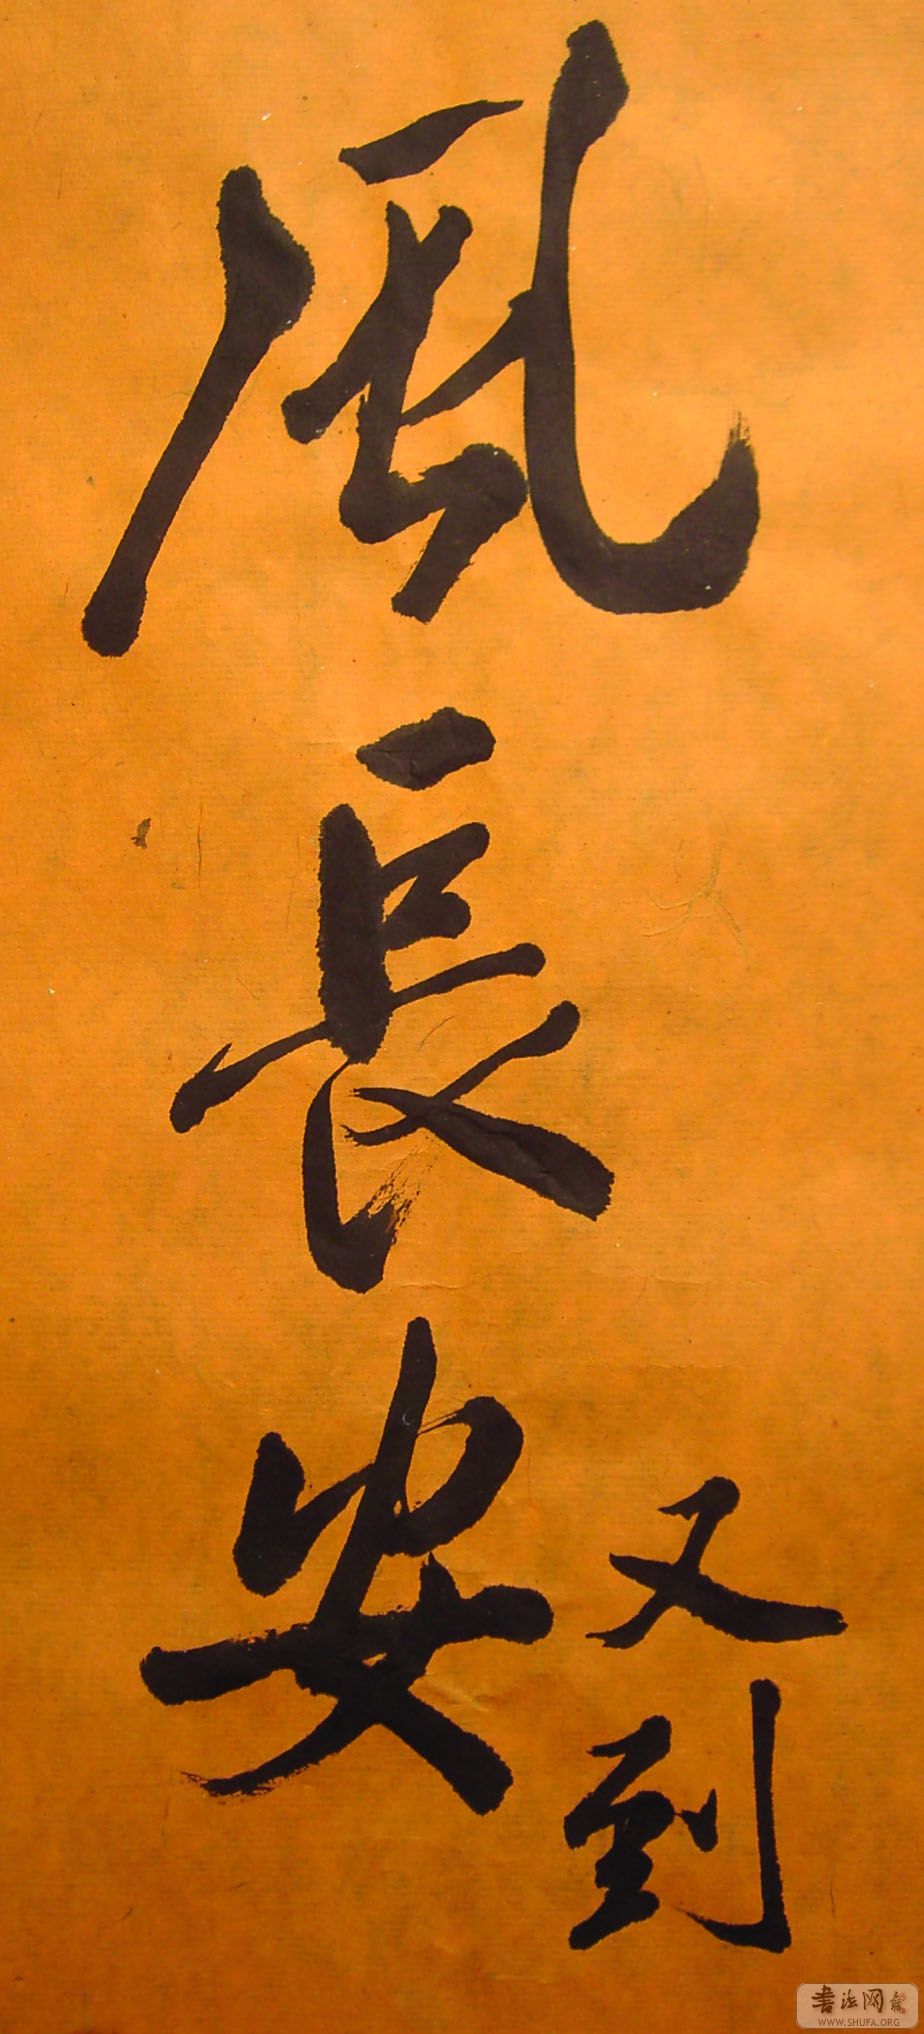 又到
風長安
書法网
WWW.SHUFA.ORG